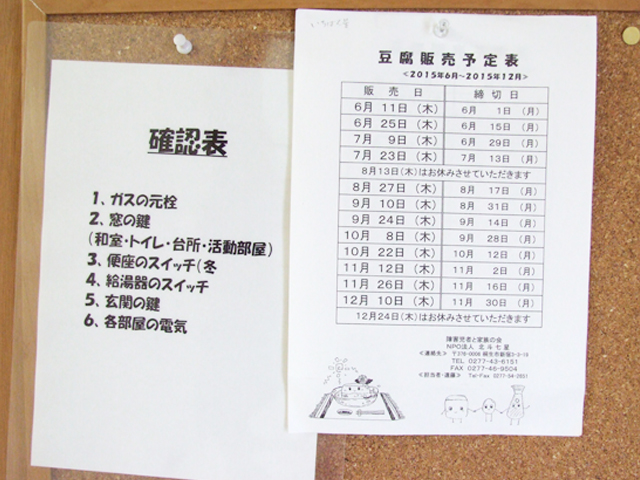 確認表
1、ガスの元栓
2、窓の鍵
(和室・トイレ・台所・活動部屋)
3、便座のスイッチ(冬
4、給湯器のスイッチ
5、玄関の鍵
6、各部屋の電気
豆腐販売予定表
<2015年6月~2015年12月>
販売日 締切日
6月 11日(木) 6月 1日(月)
6月 25日(木) 6月 15日(月)
7月 9日(木) 6月 29日(月)
7月 23日(木) 7月 13日(月)
8月13日(木)はお休みさせていただきます
8月 27日(木) 8月 17日(月)
9月 10日(木) 8月 31日(月)
9月 24日(木) 9月 14日(月)
10月 8日(木) 9月 28日(月)
10月 22日(木) 10月 12日(月)
11月 12日(木) 11月 2日(月)
11月 26日(木) 11月 16日(月)
12月 10日(木) 11月 30日(月)
12月24日(木)はお休みさせていただきます
障害児者と家族の会
NPO法人 北斗七星
<連絡先> 〒376-0006 桐生市新宿3-3-19
TEL 0277-43-6151
FAX 0277-46-9504
<担当者・遠藤> Tel・Fax 0277-54-2651